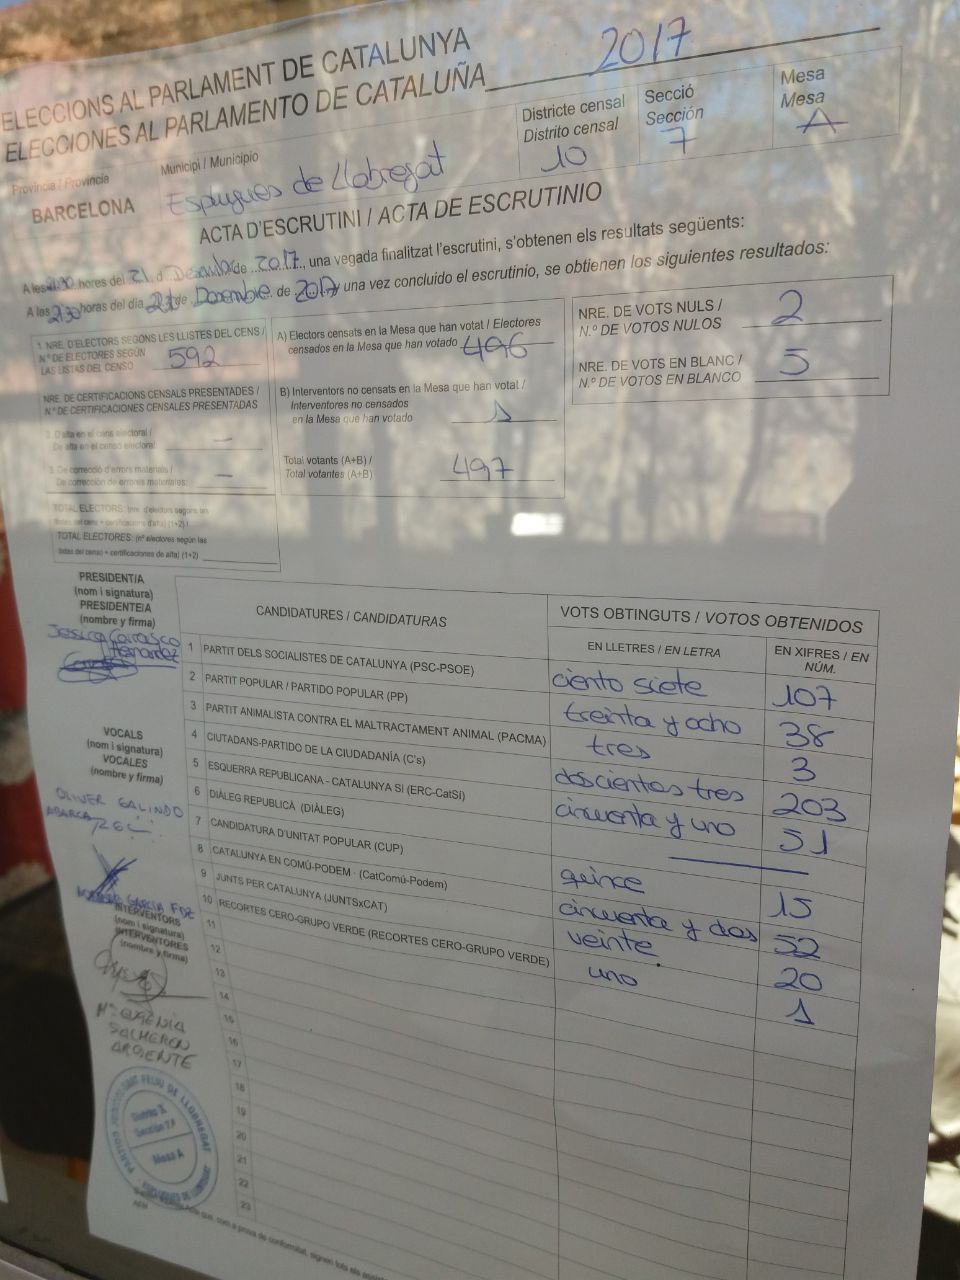 ELECCIONS AL PARLAMENT DE CATALUNYA
ELECCIONES AL PARLAMENTO DE CATALUÑA 2017
Província / Provincia
BARCELONA
Municipi / Municipio
Esplugues de Llobregat
Districte censal
Distrito censal
10
Secció
Sección
7
Mesa
Mesa
A
ACTA D'ESCRUTINI / ACTA DE ESCRUTINIO
A les hores del 21 d de 2017, una vegada finalitzat l'escrutini, s'obtenen els resultats següents:
A las horas del día de de 2017 y una vez concluido el escrutinio, se obtienen los siguientes resultados:
1. NRE. D'ELECTORS SEGONS LES LLISTES DEL CENS /
N.º DE ELECTORES SEGÚN
LAS LISTAS DEL CENSO 592
NRE. DE CERTIFICACIONS CENSALS PRESENTADES /
N.º DE CERTIFICACIONES CENSALES PRESENTADAS
2. D'alta en el cens electoral /
De alta en el censo electoral: —
3. De correcció d'errors materials /
De corrección de errores materiales: —
TOTAL ELECTORS: (nre. d'electors segons les
llistes del cens + certificacions d'alta) (1+2) /
TOTAL ELECTORES: (nº electores según las
listas del censo + certificaciones de alta) (1+2)
A) Electors censats en la Mesa que han votat / Electores
censados en la Mesa que han votado 496
B) Interventors no censats en la Mesa que han votat /
Interventores no censados
en la Mesa que han votado 1
Total votants (A+B) /
Total votantes (A+B) 497
NRE. DE VOTS NULS /
N.º DE VOTOS NULOS 2
NRE. DE VOTS EN BLANC /
N.º DE VOTOS EN BLANCO 5
PRESIDENT/A
(nom i signatura)
PRESIDENTE/A
(nombre y firma)
Jessica Carrasco
Hernandez
VOCALS
(nom i signatura)
VOCALES
(nombre y firma)
OLIVER GALINDO
ABARCA
GARCIA FDZ
INTERVENTORS
(nom i signatura)
INTERVENTORES
(nombre y firma)
Mª EUGENIA
SALMERON
ARGENTE
CANDIDATURES / CANDIDATURAS
VOTS OBTINGUTS / VOTOS OBTENIDOS
EN LLETRES / EN LETRA
EN XIFRES / EN
NÚM.
1 PARTIT DELS SOCIALISTES DE CATALUNYA (PSC-PSOE) ciento siete 107
2 PARTIT POPULAR / PARTIDO POPULAR (PP) treinta y ocho 38
3 PARTIT ANIMALISTA CONTRA EL MALTRACTAMENT ANIMAL (PACMA) tres 3
4 CIUTADANS-PARTIDO DE LA CIUDADANÍA (C's) doscientos tres 203
5 ESQUERRA REPUBLICANA - CATALUNYA SI (ERC-CatSí) cincuenta y uno 51
6 DIÀLEG REPUBLICÀ (DIÀLEG) —
7 CANDIDATURA D'UNITAT POPULAR (CUP) quince 15
8 CATALUNYA EN COMÚ-PODEM - (CatComú-Podem) cincuenta y dos 52
9 JUNTS PER CATALUNYA (JUNTSxCAT) veinte 20
10 RECORTES CERO-GRUPO VERDE (RECORTES CERO-GRUPO VERDE) uno 1
11
12
13
14
15
16
17
18
19
20
21
22
23
SANT FELIU DE LLOBREGAT
Mesa A